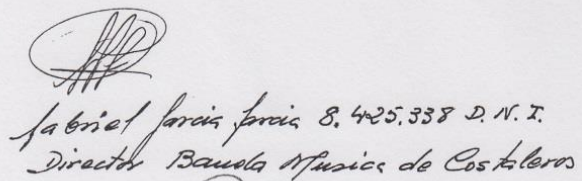 Gabriel Garcia Garcia 8.425.338 D.N.I.
Director Banda Musica de Costaleros